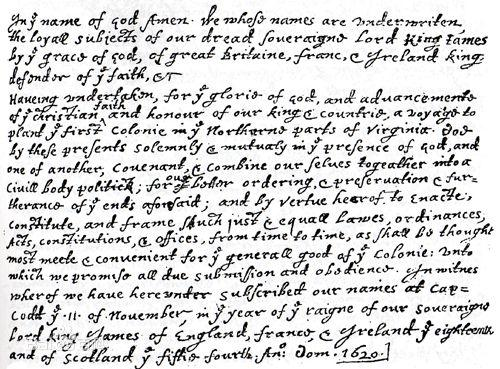 In yͤ name of God Amen. We whose names are underwriten,
the loyall subjects of our dread soveraigne Lord King James
by yͤ grace of God, of great Britaine, franc, & Ireland king,
defender of yͤ faith, &c
Haveing undertaken, for yͤ glorie of God, and advancemente
of yͤ christian faith and honour of our king & countrie, a voyage to
plant yͤ first colonie in yͤ Northerne parts of Virginia. Doe
by these presents solemnly & mutualy in yͤ presence of God, and
one of another, covenant, & combine our selves togeather into a
Civill body politick; for our better ordering, & preservation & fur-
therance of yͤ ends aforesaid; and by vertue hearof, to enacte,
constitute, and frame such just & equall Lawes, ordinances,
Acts, constitutions, & offices, from time to time, as shall be thought
most meete & convenient for yͤ generall good of yͤ colonie: unto
which we promise all due submission and obedience. In witnes
wherof we have hereunder subscribed our names at Cap-
Codd yͤ ·11· of November, in yͤ year of yͤ raigne of our soveraigne
Lord king James of England, france, & Ireland yͤ eighteenth
and of Scotland yͤ fiftie fourth. Anͦ: Dom. 1620.